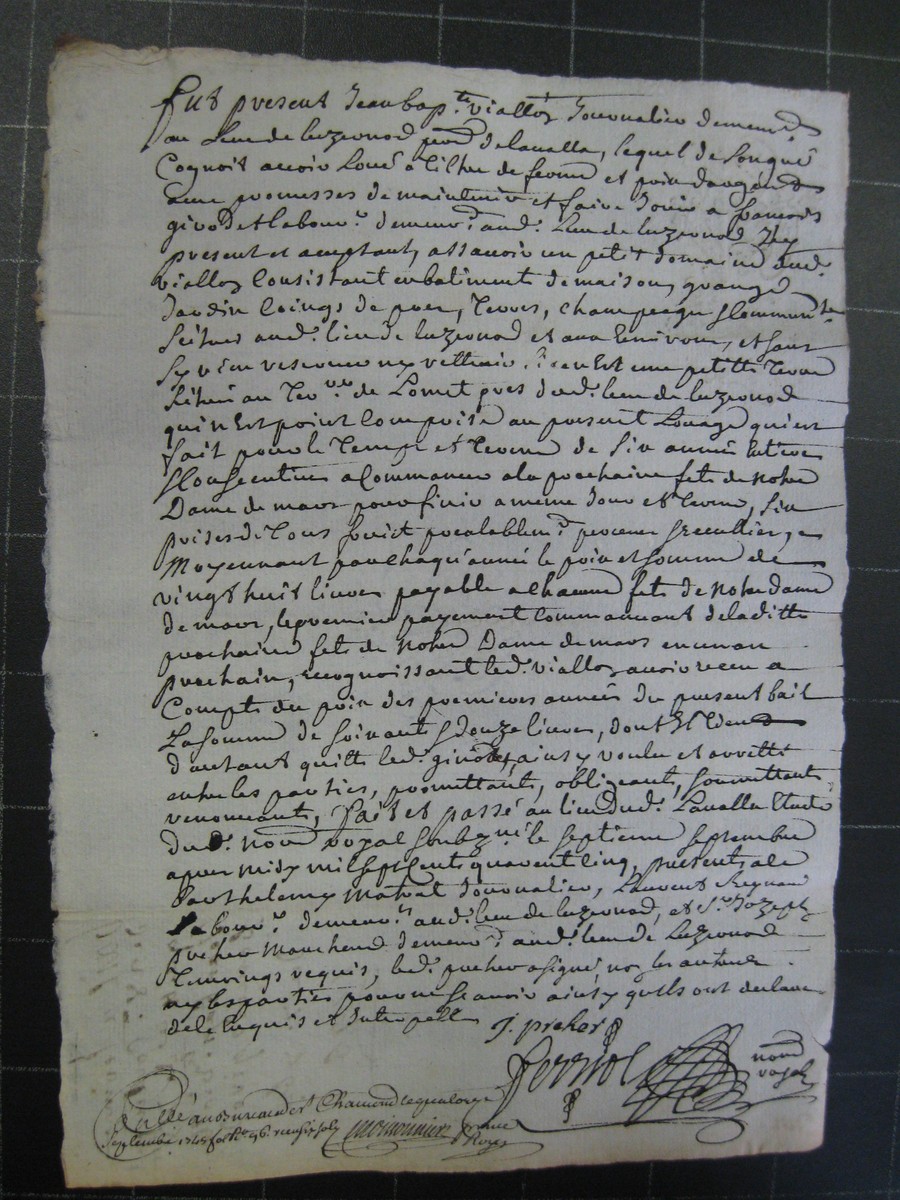 fut present Jean bap.te viallon Journalier demeur.t
au Lieu de luzernod parr.e de lavalla, lequel de son gré
Cognoit avoir Loué a tiltre de ferme et prix d'argent
avec promesses de maintenir et faire Jouir a francois
girodet labour.r demeur.t aud.t Lieu de luzernod Icy
present et aceptant, assavoir un petit domaine dud.t
viallon Consistant en batiment de maison, grange
Jardin Coings de prez, terres, champeage & Communs
scitués aud.t lieu de luzernod et aux Environs, et sans
sy rien reserver ny rettenir, si ce n'Est une petitte terre
scituée au terr.oire de Lomet pres dud.t lieu de luzernod
qui n'Est point Comprise au present Louage qui est
fait pour le temps et terme de six années Entieres
& Consecutives a Commancer a la prochaine fete de Notre
Dame de mars pour finir a meme Jour et terme, six
prises de tous fruict prealablem.t percevus & recuillies,
Moyennant par chaqu'année le prix et somme de
vingt huit livres payable a chacune fete de Notre dame
de mars, le premier payement Commancant de laditte
prochaine fete de Notre Dame de mars en un an
prochain, recognoissant led.t viallon avoir receu a
Compte du prix des premieres années du present bail
La somme de soixante & douze livres, dont Il tient
d'autant quitte led.t girodet, ainsy voulu et arretté
entre les parties, promettants, obligeants, soumettants
renoncants, fait et passé au lieu dud.t Lavalla Etude
du d.t Nore royal soubz.né le septieme septembre
apres midy mil sept cents quarent Cinq, presents a ce
Barthelemy Matrat Journalier, Laurent Reynaud
Labour.r demeur.ts aud.t lieu de luzernod, et S.r Jozeph
preher Marchand demeur.t aud.t lieu de Luzernod
temoings requis, led.t preher a signé, non les autres
ny les parties pour ne scavoir ainsy qu'ils ont declaré
de ce Enquis et Interpellé J. preher
ferriol nore royal
Collé au bureau de st Chamond le quatorze
Septembre 1745 fol.